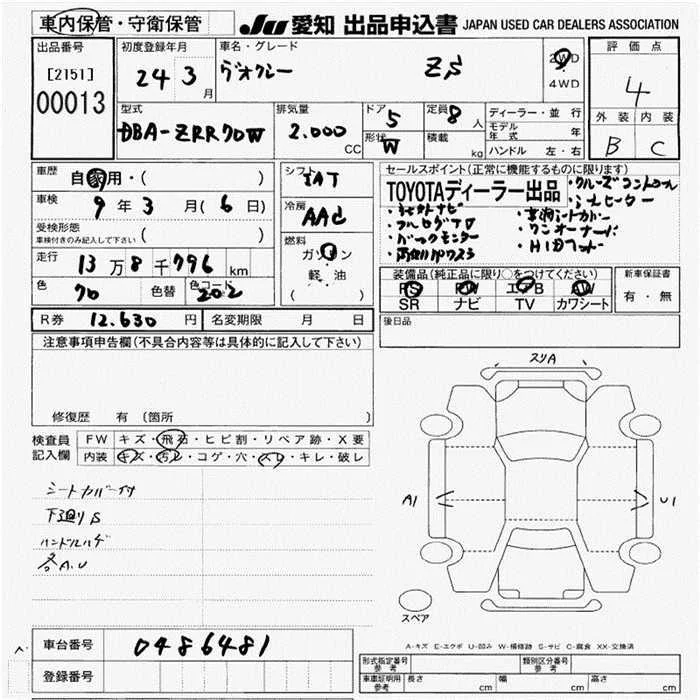 車内保管・守衛保管
JU 愛知 出品申込書 JAPAN USED CAR DEALERS ASSOCIATION
出品番号
[2151]
00013
初度登録年月
24 3 月
車名・グレード
ヴォクシー ZS
2WD
4WD
評価点
4
外装 内装
B C
型式
DBA-ZRR70W
排気量
2.000
CC
ドア 5
形状 W
定員 8 人
積載 kg
ディーラー・並行
モデル年式 年
ハンドル 左・右
車歴
自家用・( )
車検
9 年 3 月( 6 日)
受検形態
車検付きのみ記入して下さい ( )
走行
13 万 8 千 796 km
色
70
色替
色コード
202
シフト
IAT
冷房
AAC
燃料
ガソリン
軽油
( )
セールスポイント(正常に機能するものに限ります)
TOYOTAディーラー出品
・クルーズコントロール
・シートヒーター
・フルセグTV
・ワンオーナード
・バックモニター
装備品(純正品に限り○をつけてください)
PS PW エアB AW
SR ナビ TV カワシート
新車保証書
有・無
R券 12.630 円
名変期限 月 日
後日品
注意事項申告欄(不具合内容等は具体的に記入して下さい)
修復歴 有 (箇所
検査員
記入欄
FW キズ・飛石・ヒビ割・リペア跡・X要
内装 キズ・汚レ・コゲ・穴・スレ・キレ・破レ
シートカバー付
下廻りS
ハンドルハゲ
各A.U
スリA
A1
U1
スペア
A-キズ E-エクボ U-凹み W-補修跡 S-サビ C-腐食 XX-交換済
車台番号
0486481
登録番号
形式指定番号
参考
類別区分番号
参考
車庫証明用
参考
長さ cm
幅 cm
高さ cm